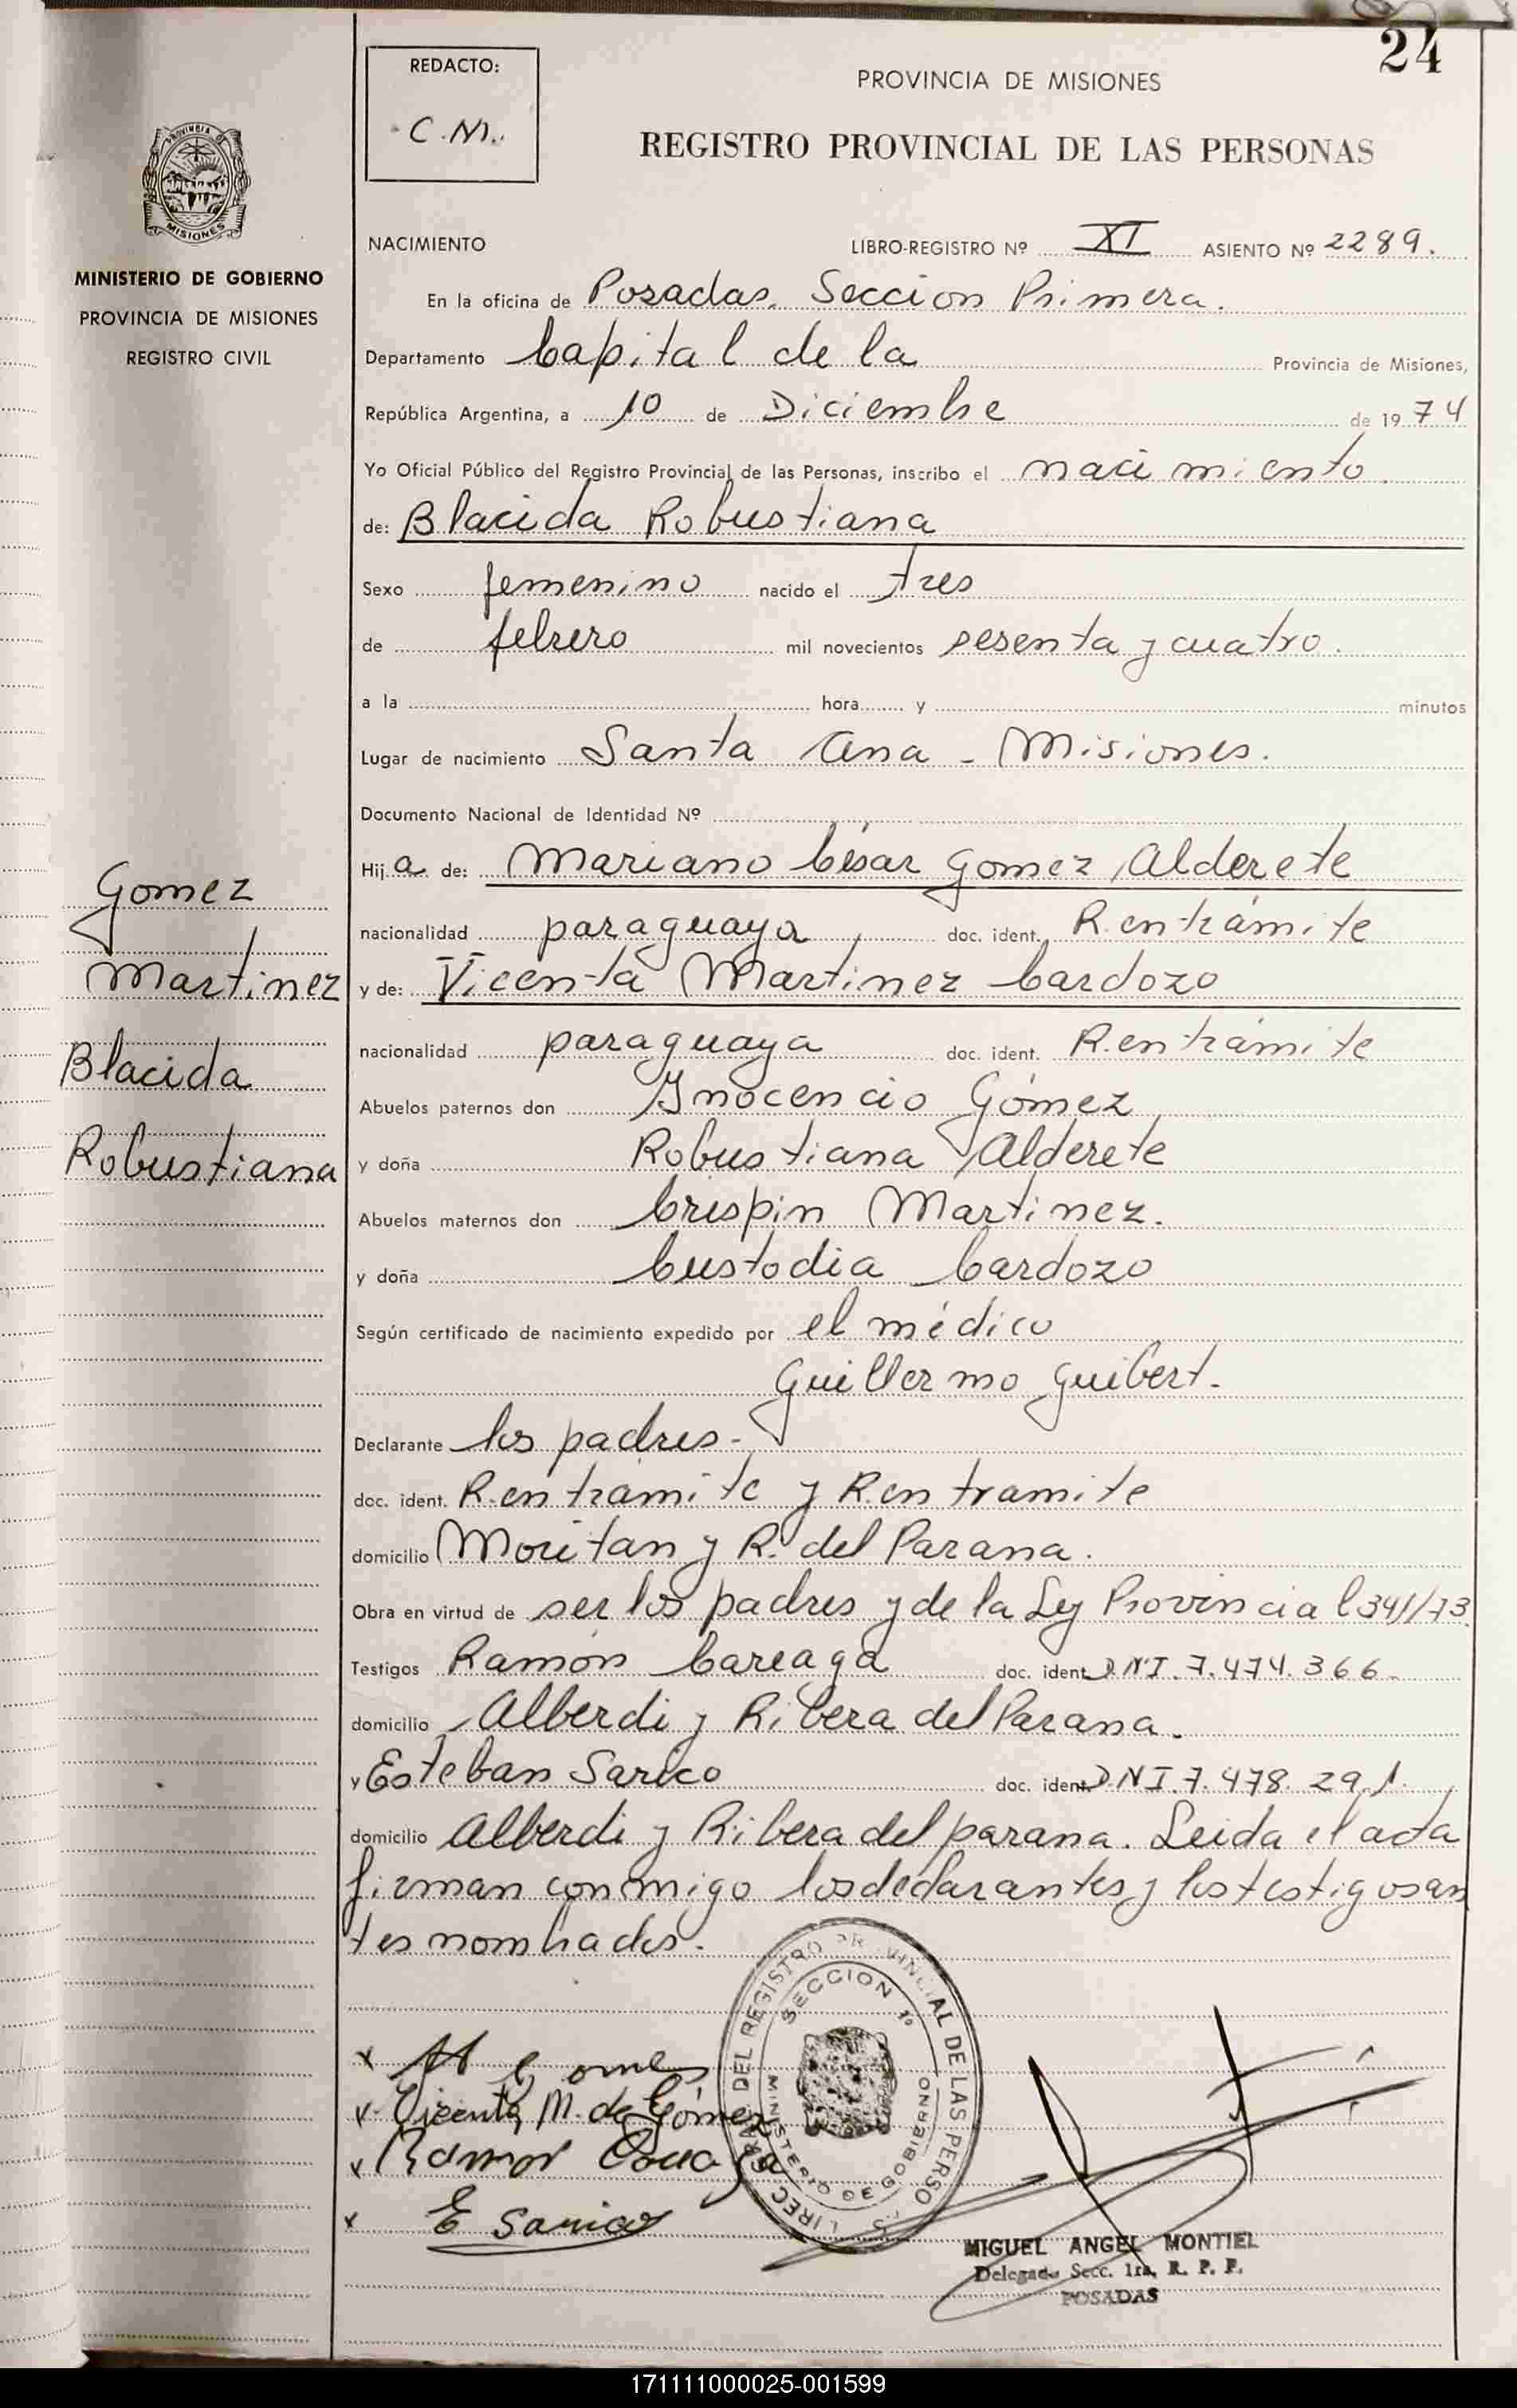 24
REDACTO:
C.M.
PROVINCIA DE MISIONES
REGISTRO PROVINCIAL DE LAS PERSONAS
PROVINCIA DE
MISIONES
MINISTERIO DE GOBIERNO
PROVINCIA DE MISIONES
REGISTRO CIVIL
NACIMIENTO LIBRO-REGISTRO Nº XI ASIENTO Nº 2289.
En la oficina de Posadas. Seccion Primera.
Departamento Capital de la Provincia de Misiones,
República Argentina, a 10 de Diciembre de 1974
Yo Oficial Público del Registro Provincial de las Personas, inscribo el nacimiento
de: Blacida Robustiana
Sexo femenino nacido el tres
de febrero mil novecientos sesenta y cuatro.
a la hora y minutos
Lugar de nacimiento Santa Ana - Misiones.
Documento Nacional de Identidad Nº
Hija de: Mariano César Gomez Alderete
nacionalidad paraguaya doc. ident. R. en trámite
y de: Vicenta Martinez Cardozo
nacionalidad paraguaya doc. ident. R. en trámite
Abuelos paternos don Ynocencio Gómez
y doña Robustiana Alderete
Abuelos maternos don Crispin Martinez.
y doña Custodia Cardozo
Según certificado de nacimiento expedido por el médico
Guillermo Guibert.
Declarante los padres.
doc. ident. R. en tramite y R. en tramite
domicilio Moritan y R. del Parana.
Obra en virtud de ser los padres y de la Ley Provincial 341/73
Testigos Ramón Careaga doc. ident. DNI. 7.474.366.
domicilio Alberdi y Ribera del Parana.
y Esteban Sarico doc. ident. DNI 7.478.291.
domicilio Alberdi y Ribera del parana. Leida el acta
firman conmigo los declarantes y los testigos an
tes nombrados.
Gomez
Martinez
Blacida
Robustiana
x
x Vicenta M. de Gómez
x Ramon Careaga
x E Sarico
DIREC. GRAL. DEL REGISTRO PROVINCIAL DE LAS PERSONAS
SECCION 1º
MINISTERIO DE GOBIERNO
MIGUEL ANGEL MONTIEL
Delegado Secc. 1ra. R. P. P.
POSADAS
171111000025-001599